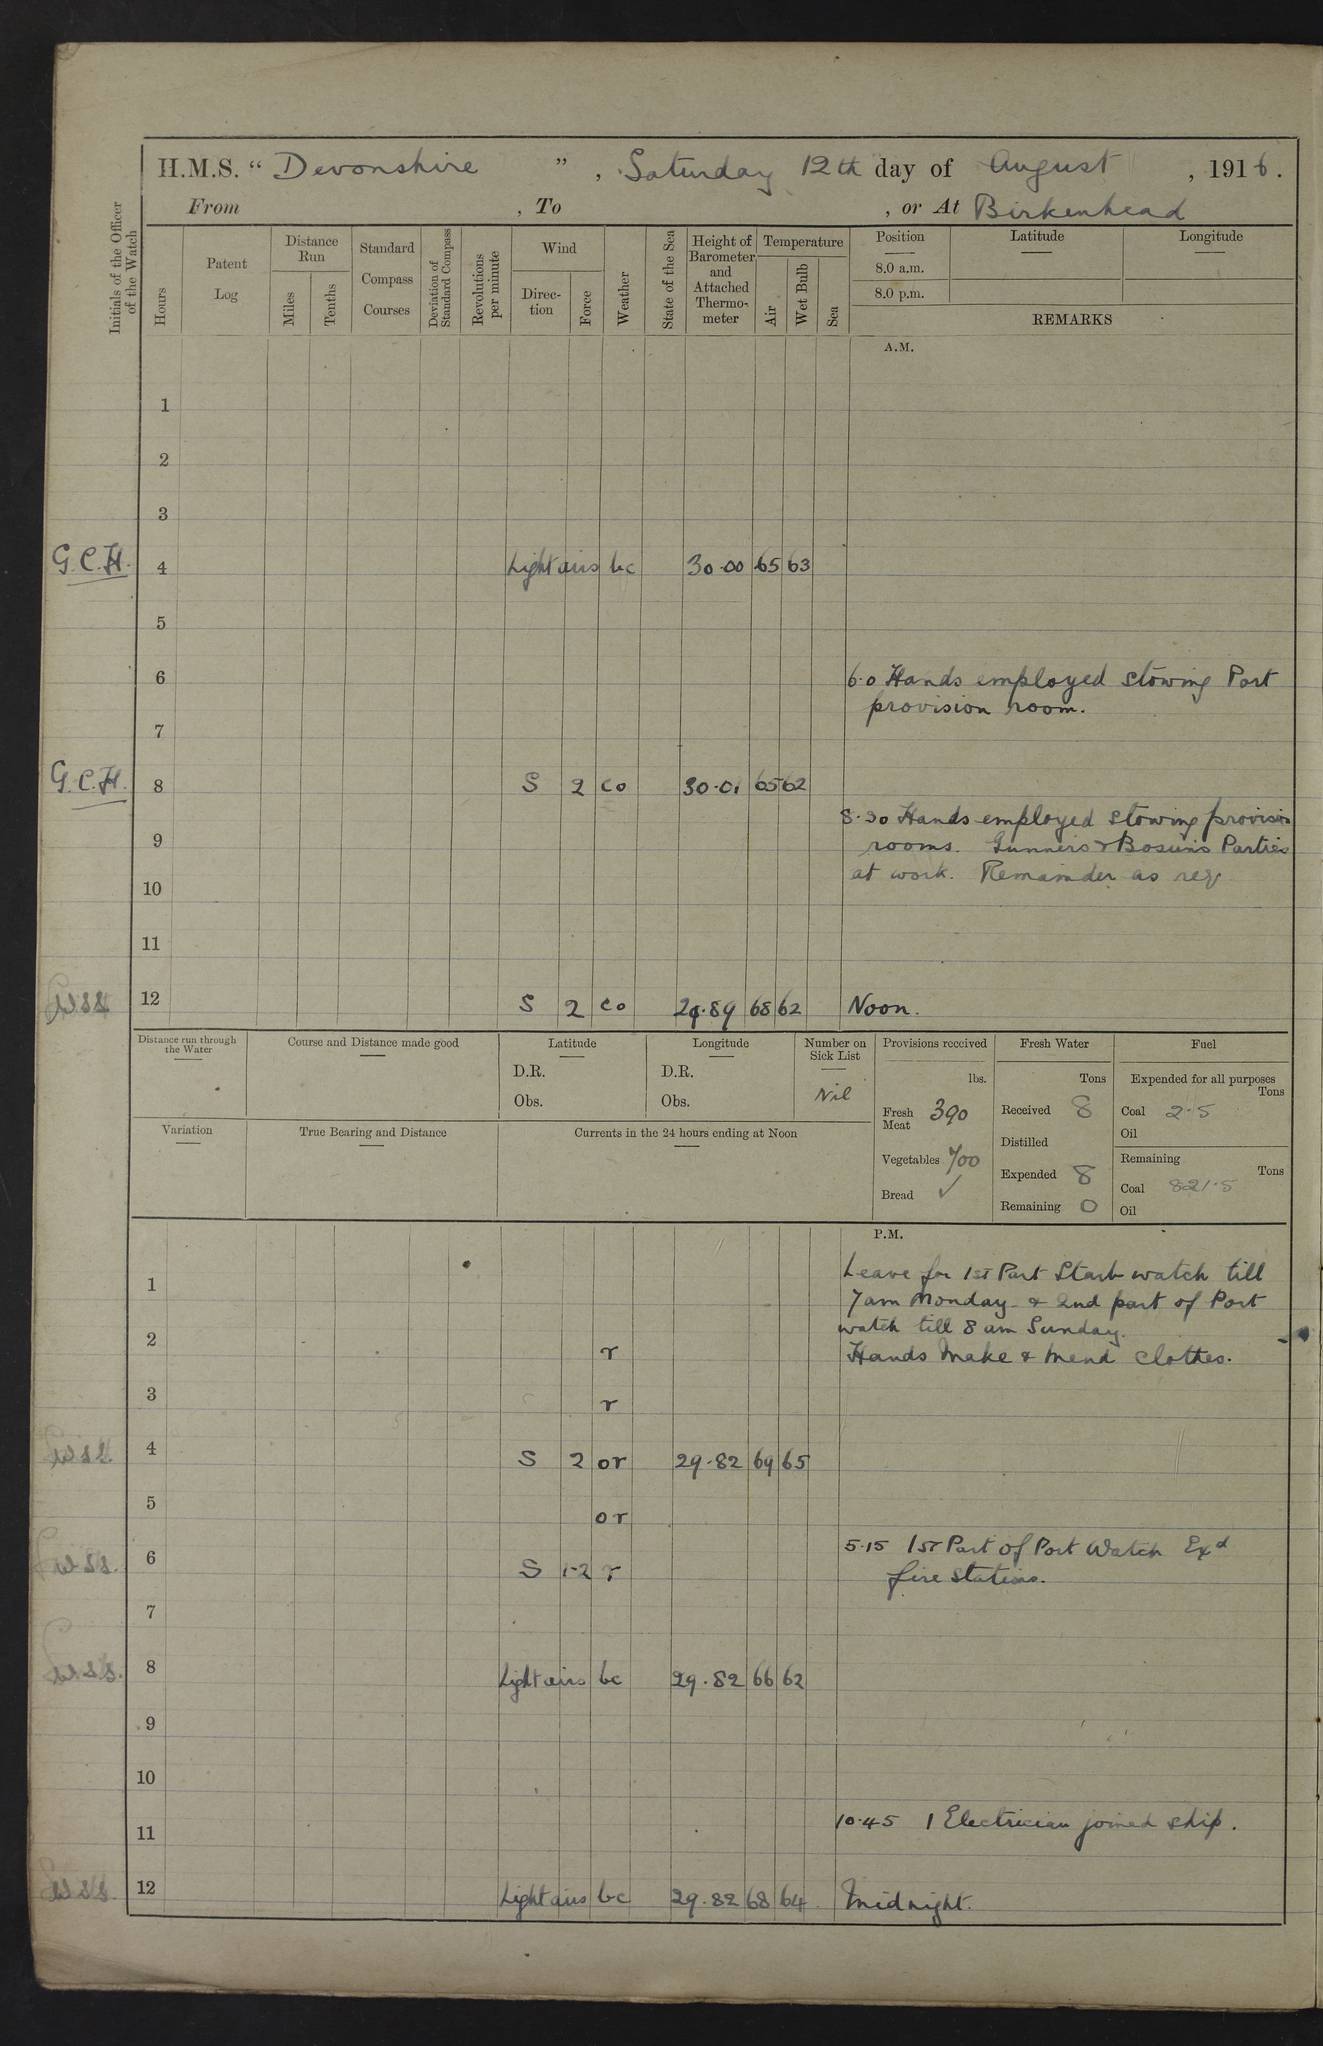 H.M.S. " Devonshire ", Saturday 12th day of August, 1916.
From , To , or At Birkenhead
Initials of the Officer of the Watch
Hours
Patent Log
Distance Run
Miles
Tenths
Standard Compass Courses
Deviation of Standard Compass
Revolutions per minute
Wind
Direction
Force
Weather
State of the Sea
Height of Barometer and Attached Thermometer
Temperature
Air
Wet Bulb
Sea
Position
8.0 a.m.
8.0 p.m.
Latitude
Longitude
REMARKS
A.M.
1
2
3
G.C.H. 4 Light airs bc 30.00 65 63
5
6 6.0 Hands employed stowing Port
provision room.
7
G.C.H. 8 S 2 co 30.01 65 62
8.30 Hands employed stowing provision
9 rooms. Gunners & Bosuns Parties
10 at work. Remainder as req
11
12 S 2 co 29.89 68 62 Noon.
Distance run through the Water
Course and Distance made good
Latitude
D.R.
Obs.
Longitude
D.R.
Obs.
Number on Sick List
Nil
Provisions received
lbs.
Fresh Meat 390
Vegetables 700
Bread ✓
Fresh Water
Tons
Received 8
Distilled
Expended 8
Remaining 0
Fuel
Expended for all purposes
Tons
Coal 2.5
Oil
Remaining
Tons
Coal 821.5
Oil
Variation
True Bearing and Distance
Currents in the 24 hours ending at Noon
P.M.
Leave for 1st Part Starb watch till
1 7am Monday & 2nd part of Port
watch till 8 am Sunday.
2 r Hands make & mend clothes.
3 r
4 S 2 or 29.82 69 65
5 or
5.15 1st Part of Port Watch Exd
6 S 1-2 r fire stations.
7
8 Light airs bc 29.82 66 62
9
10
10.45 1 Electrician joined ship.
11
12 Light airs bc 29.82 68 64 Midnight.